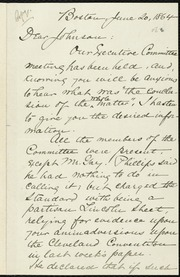 Boston, June 20, 1864.
Dear Johnson:
Our Executive Committee
meeting has been held, and,
knowing you will be anxious
to hear what was "the conclu-
sion of the whole matter," I hasten
to give you the desired in-
formation.
All the members of the
Committee were present
except Mr. Gay. Phillips said
he had nothing to do in
calling it; but charged the
Standard with being a
partisan Lincoln sheet,
relying for evidence upon
your animadversions upon
the Cleveland Convention
in last week's paper.
He declared that if such